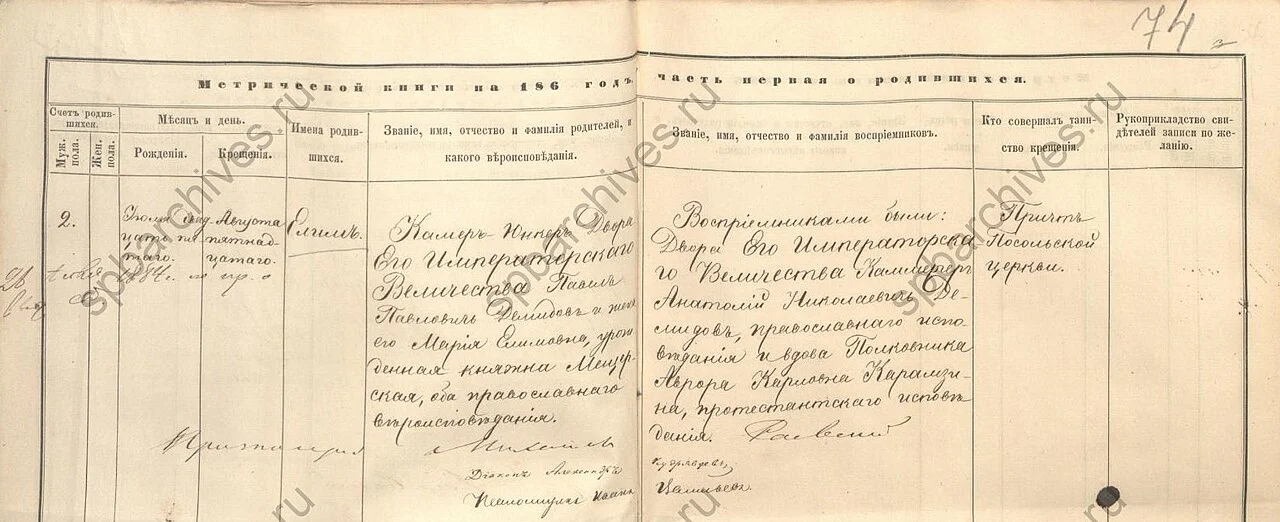 74
Метрической книги на 186 годъ, часть первая о родившихся.
Счетъ родив-
шихся.
Муж. пола.
Жен. пола.
Мѣсяцъ и день.
Рожденія.
Крещенія.
Имена родив-
шихся.
Званіе, имя, отчество и фамилія родителей, и
какого вѣроисповѣданія.
Званіе, имя, отчество и фамилія воспріемниковъ.
Кто совершалъ таин-
ство крещенія.
Рукоприкладство сви-
дѣтелей записи по же-
ланію.
2.
Іюля двад-
цать
таго.
1884 г.
Августа
пятнад-
цатаго.
Елимъ.
Камеръ-Юнкеръ Двора
Его Императорскаго
Величества Павелъ
Павловичъ Демидовъ и жена
его Марія Елимовна, урож-
денная княжна Мещер-
ская, оба православнаго
вѣроисповѣданія.
Воспріемниками были:
Двора Его Императорска-
го Величества Камергеръ
Анатолій Николаевичъ Де-
мидовъ, православнаго испо-
вѣданія и вдова Полковника
Аврора Карловна Карамзи-
на, протестантскаго исповѣ-
данія. Раевский
Причтъ
Посольской
церкви.
Михаилъ
Діаконъ Александръ
Кудрявцевъ
Псаломщикъ Иоаннъ
spbarchives.ru
spbarchives.ru
spbarchives.ru